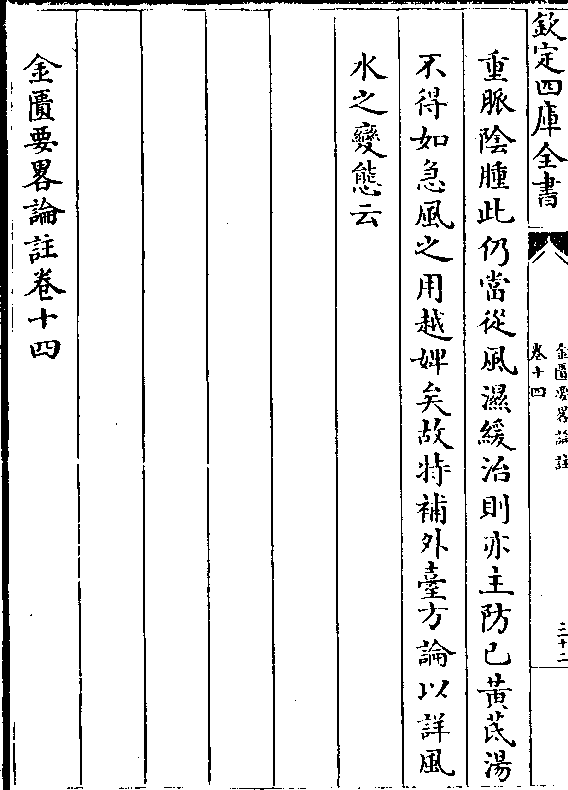 欽定四庫全書
金匱要畧論註
卷十四
三十二
重脈陰腫此仍當從風濕緩治則亦主防己黃芪湯
不得如急風之用越婢矣故特補外臺方論以詳風
水之變態云
金匱要畧論註卷十四